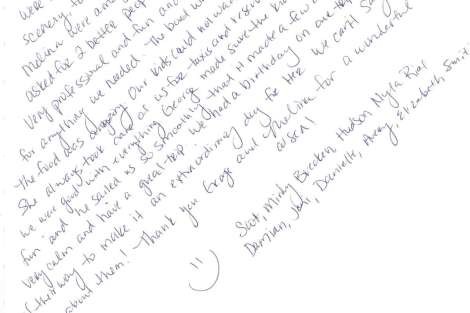 were
scenery to
Melina were am
asked for 2 better peop
very professional and fun and
for anything we needed. The boat wa
The food was amazing Our kids could not wa
She always took care of us for taxis and reser
we were good with everything George made sure the ki
fun and he sailed us so smoothly that it made a few o
very calm and have a great trip. We had a birthday on our tr
their way to make it an extraordinary day for her. We can't say
about them! Thank you George and Melina for a wonderful
Scott, Mindy, Brecken, Hudson, Nyla Rae
Damian, Danielle, Avery, Elizabeth